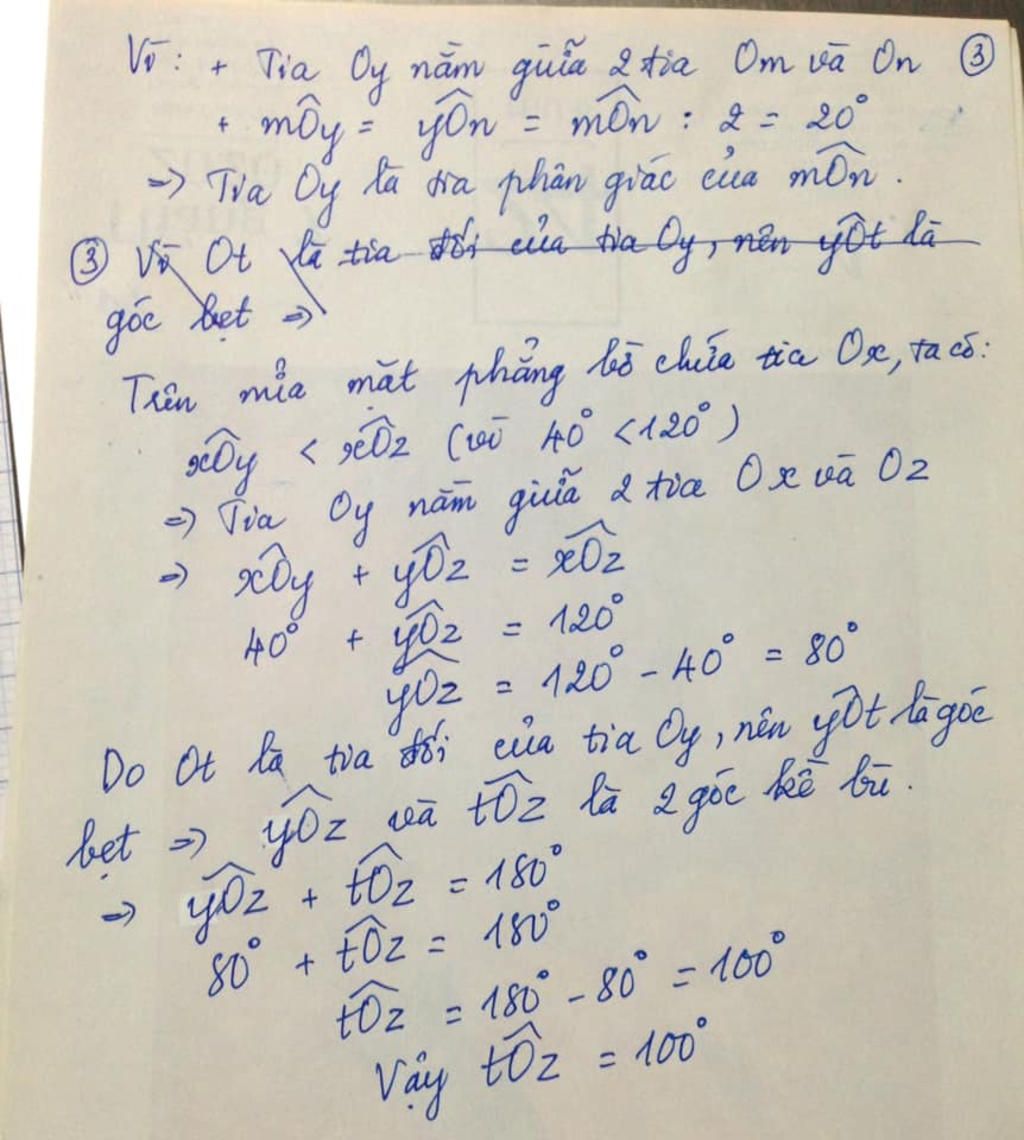 Vì: + Tia Oy nằm giữa 2 tia Om và On ③
+ mÔy = yÔn = mÔn : 2 = 20°
=> Tia Oy là tia phân giác của mÔn.
③ Vì Ot là tia đối của tia Oy, nên yÔt là
góc bẹt =>
Trên nửa mặt phẳng bờ chứa tia Ox, ta có:
xÔy < xÔz (vì 40° < 120°)
=> Tia Oy nằm giữa 2 tia Ox và Oz
=> xÔy + yÔz = xÔz
40° + yÔz = 120°
yÔz = 120° - 40° = 80°
Do Ot là tia đối của tia Oy, nên yÔt là góc
bẹt => yÔz và tÔz là 2 góc kề bù.
=> yÔz + tÔz = 180°
80° + tÔz = 180°
tÔz = 180° - 80° = 100°
Vậy tÔz = 100°